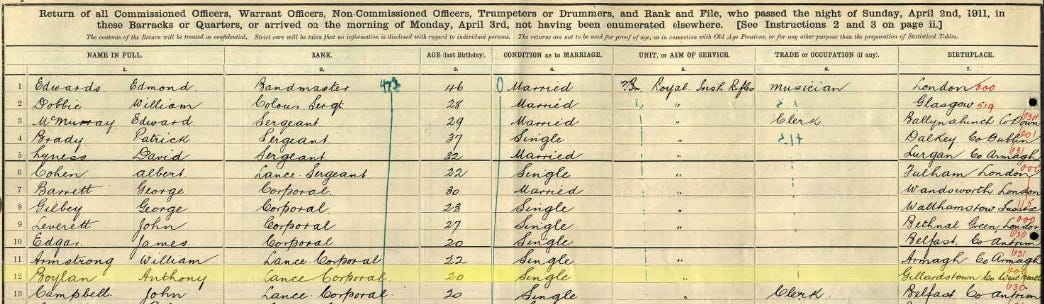 Return of all Commissioned Officers, Warrant Officers, Non-Commissioned Officers, Trumpeters or Drummers, and Rank and File, who passed the night of Sunday, April 2nd, 1911, in
these Barracks or Quarters, or arrived on the morning of Monday, April 3rd, not having been enumerated elsewhere. [See Instructions 2 and 3 on page ii.]
The contents of the Return will be treated as confidential. Strict care will be taken that no information is disclosed with regard to individual persons. The returns are not to be used for proof of age, as in connection with Old Age Pensions, or for any other purpose than the preparation of Statistical Tables.
NAME IN FULL. RANK. AGE (last Birthday). CONDITION as to MARRIAGE. UNIT, or ARM OF SERVICE. TRADE or OCCUPATION (if any). BIRTHPLACE.
1. 2. 3. 4. 5. 6. 7.
1 Edwards Edmond Bandmaster 46 Married Royal Irish Rifles Musician London 000
2 Dobbie William Colour Sergt 28 Married " Glasgow 519
3 McMurray Edward Sergeant 29 Married " Clerk Ballynahinch Co Down
4 Brady Patrick Sergeant 37 Single " Dalkey Co Dublin
5 Lyness David Sergeant 32 Married " Lurgan Co Armagh
6 Cohen albert Lance Sergeant 22 Single " Fulham London
7 Barrett George Corporal 30 Married " Wandsworth London
8 Gilbey George Corporal 23 Single " Walthamstow
9 Leverett John Corporal 27 Single " Bethnal Green London
10 Edgar James Corporal 20 Single " Belfast Co Antrim
11 Armstrong William Lance Corporal 22 Single " Armagh Co Armagh
12 Boylan Anthony Lance Corporal 20 Single " Gillardstown Co West Meath
13 Campbell John Lance Corporal 20 Single " Clerk Belfast Co Antrim